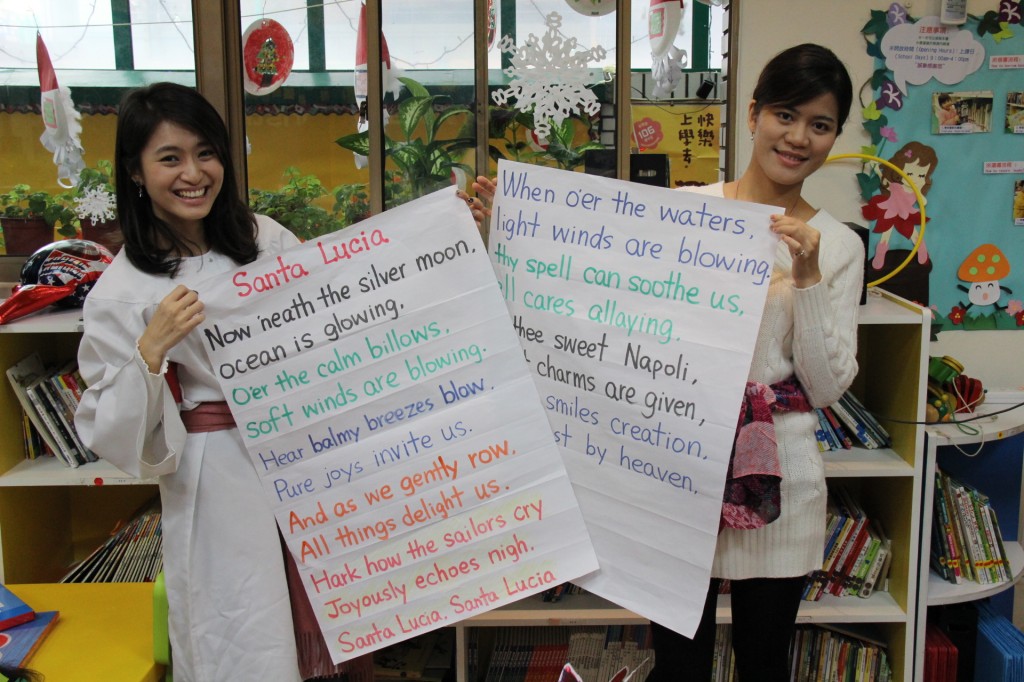 Santa Lucia
Now 'neath the silver moon,
ocean is glowing,
O'er the calm billows,
soft winds are blowing.
Hear balmy breezes blow,
Pure joys invite us.
And as we gently row,
All things delight us.
Hark how the sailors cry
Joyously echoes nigh,
Santa Lucia, Santa Lucia
When o'er the waters,
light winds are blowing.
thy spell can soothe us,
cares allaying.
thee sweet Napoli,
charms are given,
smiles creation,
by heaven,
快樂
上學去
106
注意事項